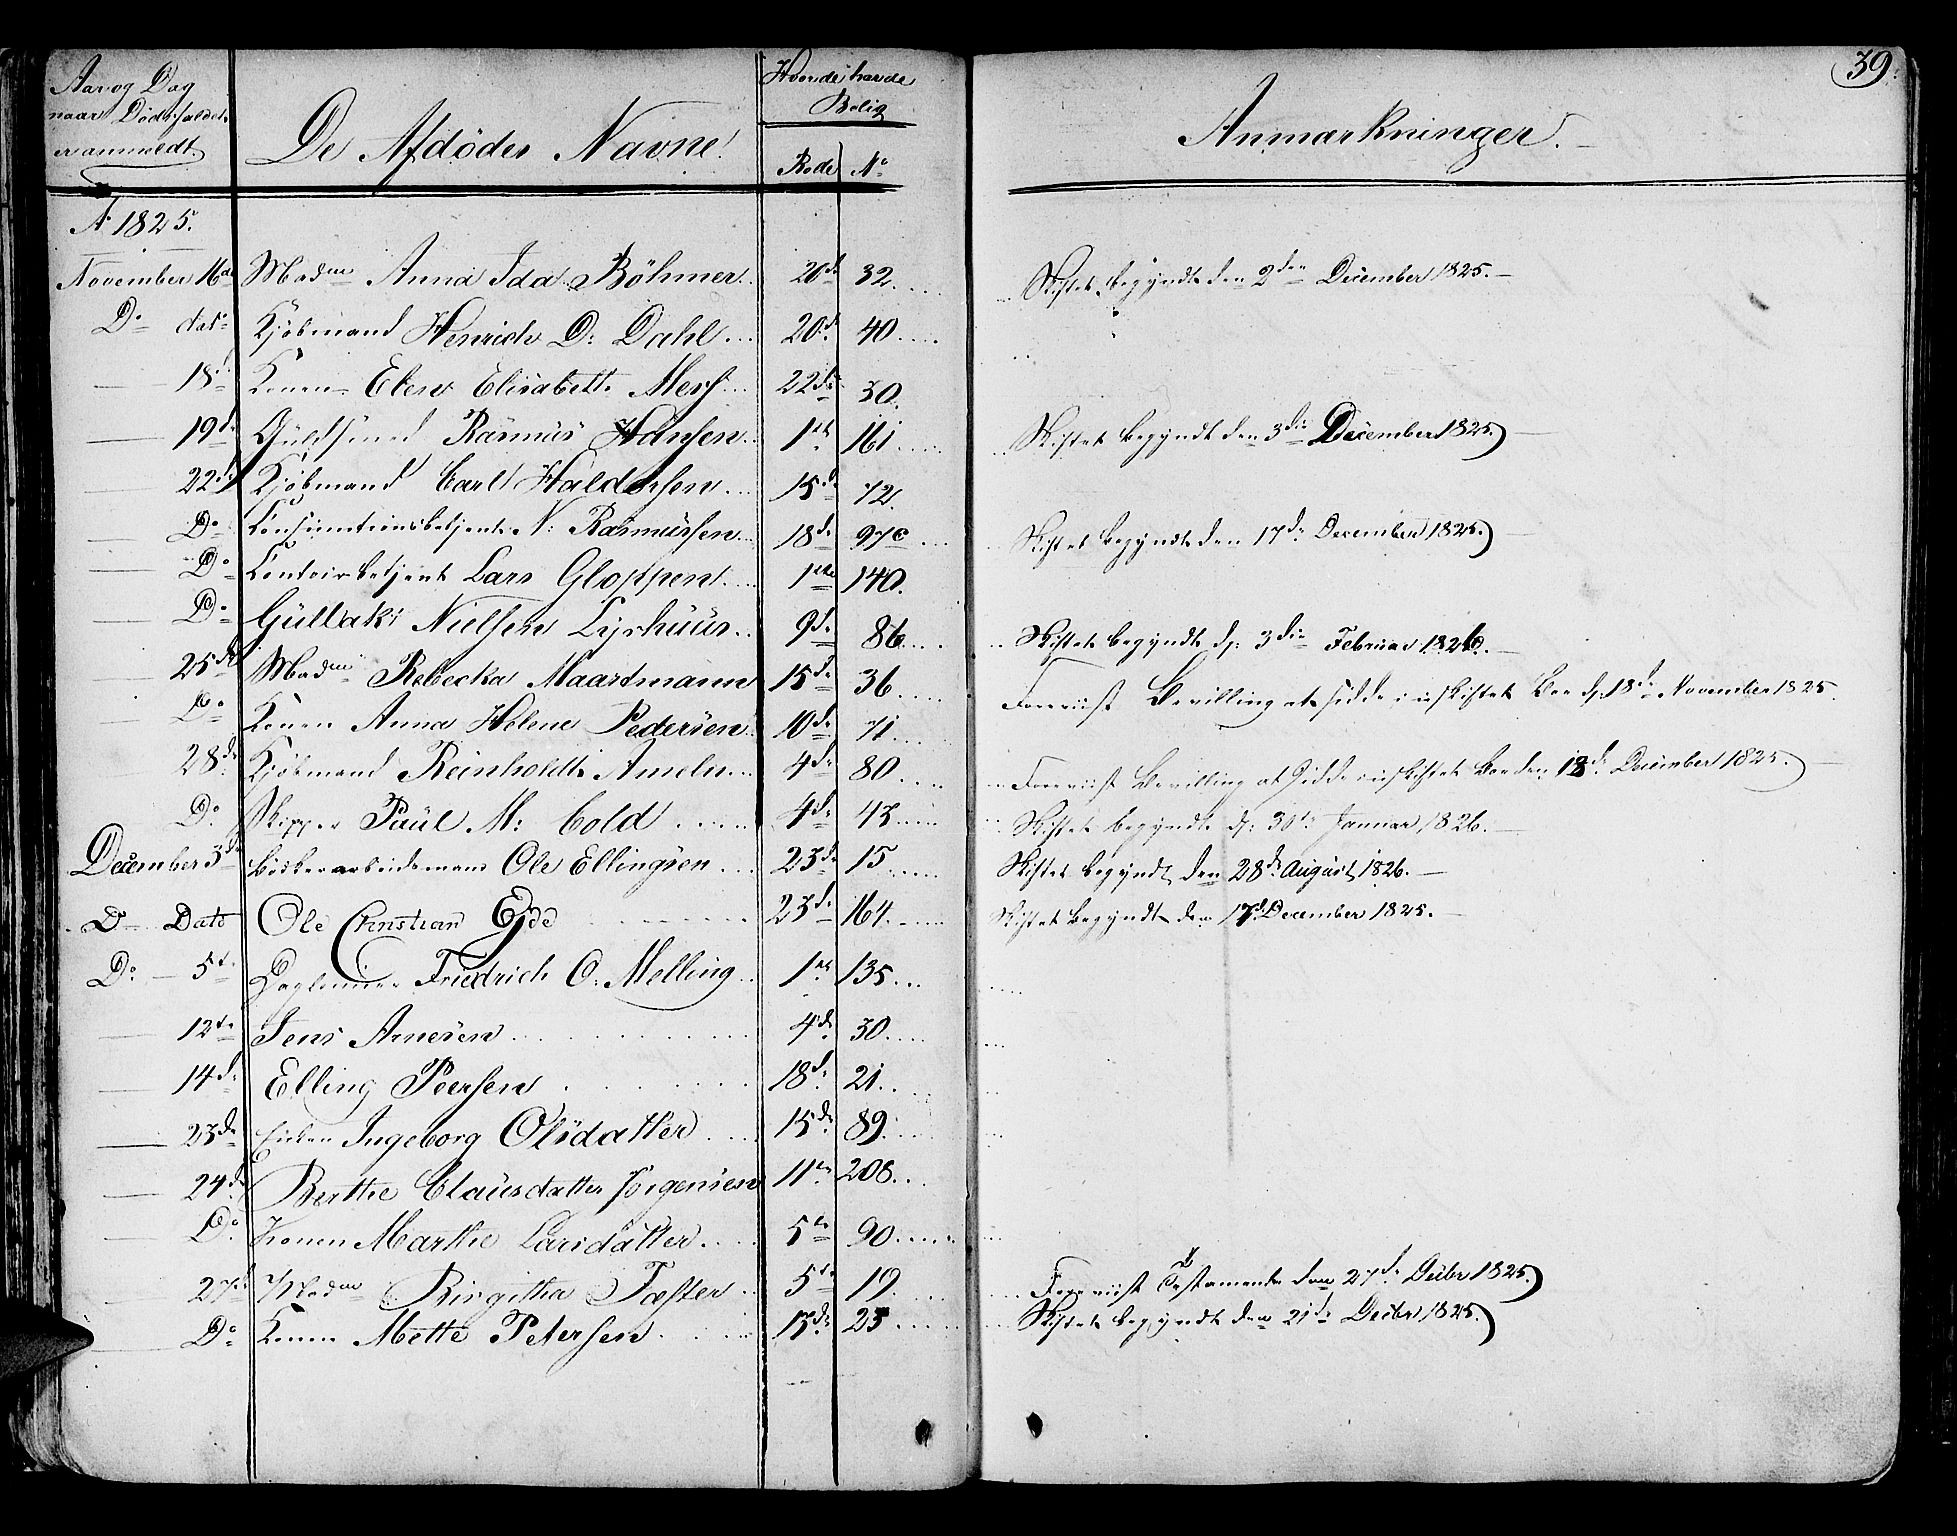 39.
Aar og Dag
naar Dødsfaldet
er anmeldt.
De Afdødes Navne.
Hvor de havde
Bolig
Rode No
Anmærkninger.
Ao 1825.
November 16de Madme Anna Ida Böhmer 20de 32 Skiftet begyndt den 2den December 1825.
Do dato Kjøbmand Henrich D: Dahl 20de 40
18de Konen Elen Elisabeth 22de 30.
19de Guldsmed Rasmus Hansen 1te 161 Skiftet begyndt den 3die December 1825.
22de Kjøbmand Carl Haldorsen 15de 72.
Do Consumtionsbetjent N: Rasmussen 18de 97c Skiftet begyndt den 17de December 1825.
Do Contoirbetjent Lars Gloppen 1ste 140.
Do Gullak Nielsen Lyshuus 9de 86 Skiftet begyndt d: 3die Februar 1826.
25de Madme Rebecka Maartmann 15de 36 Foreviist Bevilling at sidde i uskiftet Boe d: 18de November 1825.
Do Konen Anna Helene Pedersen 10de 71
28de Kjøbmand Reinholdt Ameln 4de 80 Foreviist Bevilling at sidde i uskiftet Boe den 18de December 1825.
Do Skipper Paul M: Cold 4de 43 Skiftet begyndt d: 30te Januar 1826.
December 3de Bødkerarbeidsmand Ole Ellingsen 23de 15 Skiftet begyndt den 28de August 1826.
Do Dato Ole Christian Eide 23de 164 Skiftet begyndt den 17de December 1825.
Do 5te Dagleiier Friedrich O. Melling 1ste 135
12te Jens Arnesen 4de 30
14de Elling Peersen 18de 21
23de Enken Ingeborg Olsdatter 15de 89
24de Berthe Clausdatter Jörgensen 11te 208
Do Konen Marthe Larsdatter 5te 90
27de Madme Birgitha Fæster 5te 19 Foreviist Testamente den 27de Decbr 1825.
Do Konen Mette Petersen 13de 23 Skiftet begyndt den 21de Decbr 1825.